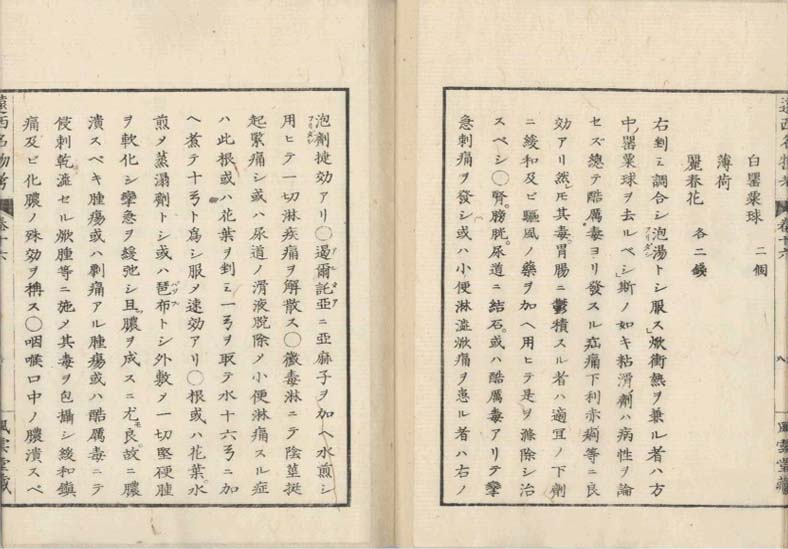 白罌粟球 二個
薄荷
麗春花 各二錢
右剉ミ調合シ泡湯トシ服ス焮衝熱ヲ兼ル者ハ方
中ノ罌粟球ヲ去ルベシ斯ノ如キ粘滑劑ハ病性ヲ論
セズ總テ酷厲毒ヨリ發スル疝痛下利赤痢等ニ良
効アリ然レモ其毒胃腸ニ鬱積スル者ハ適宜ノ下劑
ニ緩和及ビ驅風ノ藥ヲ加ヘ用ヒテ是ヲ滌除シ治
スベシ〇腎膀胱尿道ニ結石或ハ酷厲毒アリテ攣
急刺痛ヲ發シ或ハ小便淋澁焮痛ヲ患ル者ハ右ノ
遠西名物考 卷十六 八 風雲堂藏
泡劑捷効アリ〇遏爾託亞ニ亞麻子ヲ加ヘ水煎シ
用ヒテ一切淋疾痛ヲ解散ス〇黴毒淋ニテ陰莖挺
起緊痛シ或ハ尿道ノ滑液脱除メ小便淋痛スル症
ハ此根或ハ花葉ヲ剉ミ一ヲ取テ水十六ニ加
ヘ煮テ十ト為シ服メ速効アリ〇根或ハ花葉水
煎メ蒸溻劑トシ或ハ琶布トシ外敷メ一切堅硬腫
ヲ軟化シ攣急ヲ緩弛シ且膿ヲ成スニ尤モ良故ニ膿
潰スベキ腫瘍或ハ剥痛アル腫瘍或ハ酷厲毒ニテ
侵刺乾澁セル焮腫等ニ施メ其毒ヲ包攝シ緩和鎮
痛及ビ化膿ノ殊効ヲ稱ス〇咽喉口中ノ膿潰スベ
遠西名物考 卷十六 風雲堂藏